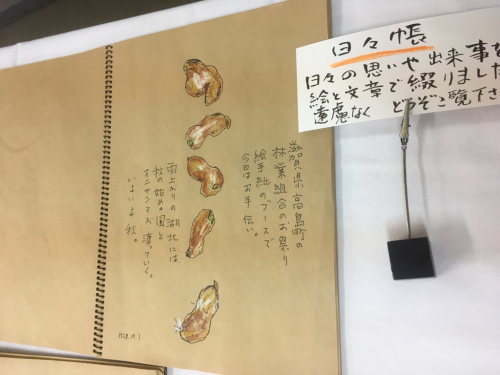 日々帳
日々の思いや出来事を
絵と文章で綴りました
遠慮なく どうぞご覧下さ
滋賀県高島町の
林業組合のお祭り
絵手紙のブースで
今日はお手伝い。
雨上がりの湖北には
秋の始めの風と
オニヤンマが渡っていく。
いよいよ秋。